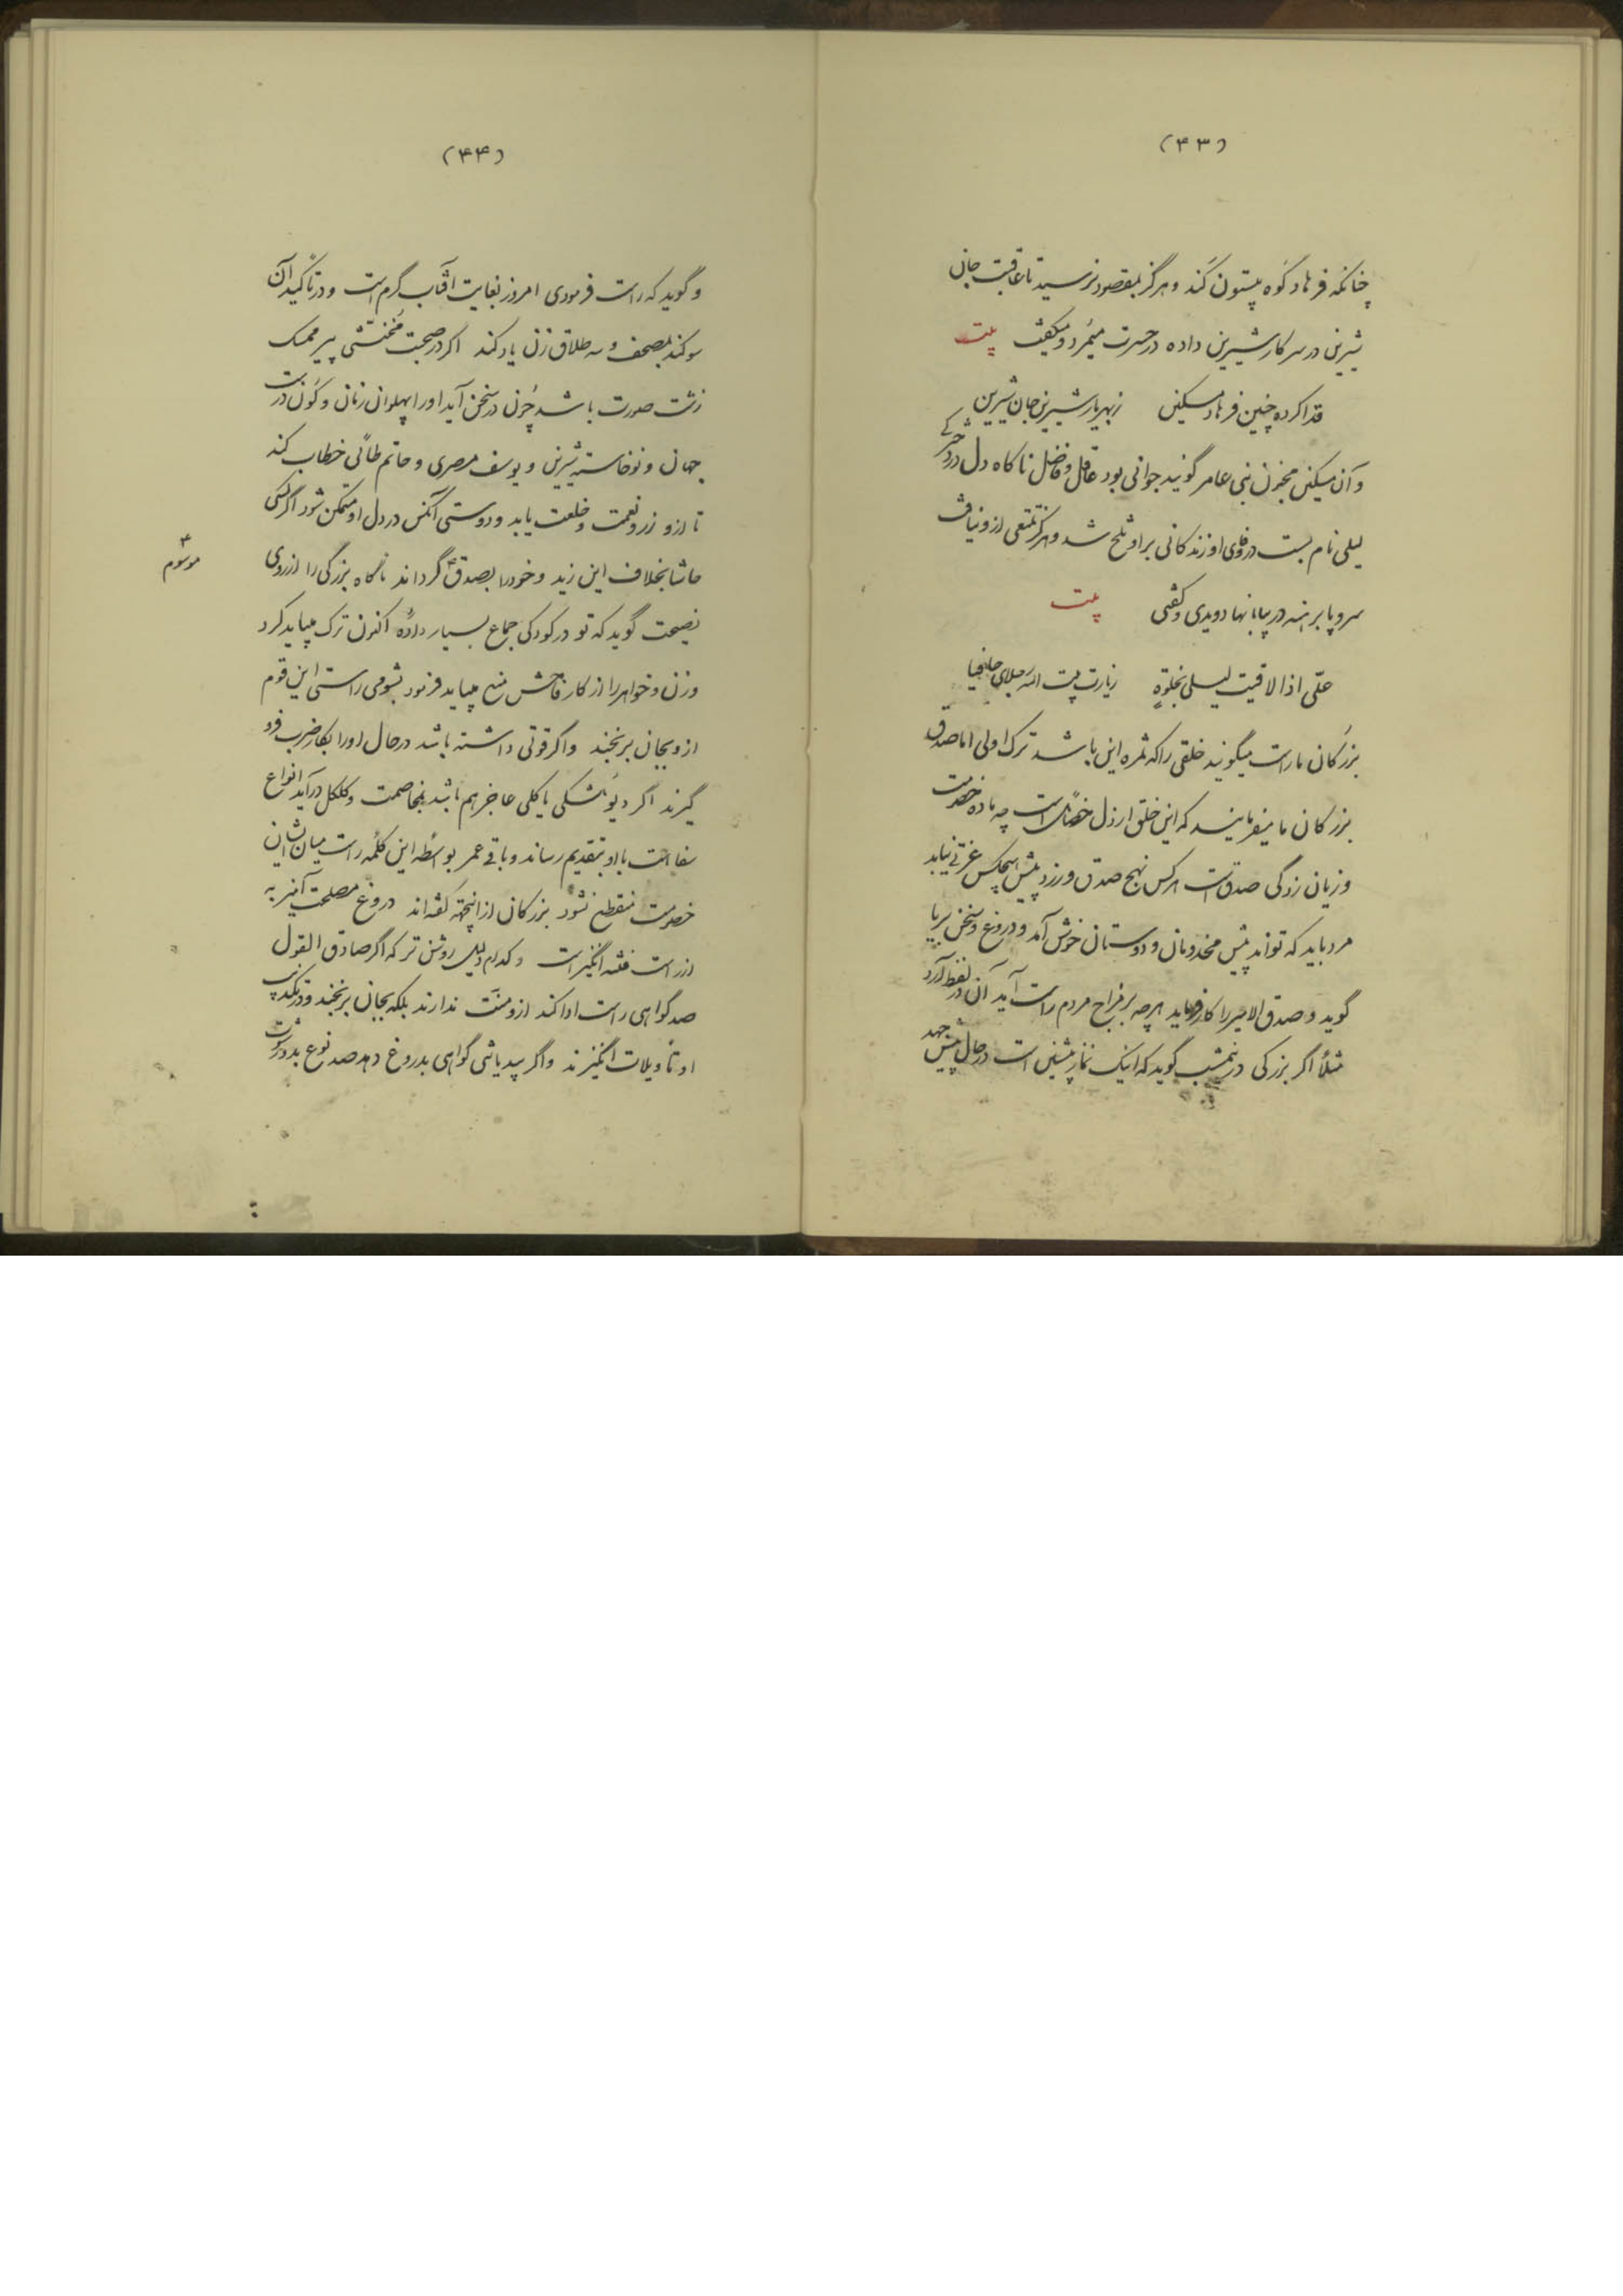 (۴۳)
چنانکه فرهاد کوه بیستون کند و هرگز بمقصود نرسید تا عاقبت جان
شیرین در سر کار شیرین داده در حسرت میمرد و میگفت بیت
فدا کرده چنین فرهاد مسکین زبهر یار شیرین جان شیرین
و آن مسکین مجنون بنی عامر گویند جوانی بود عاقل و فاضل ناکاه دل در دخترکی
لیلی نام بست در وفای او زندکانی بر او تلخ شد و هرکز تمتعی از و نیافت
سر و پا برهنه در بیابانها دویدی و گفتی بیت
علّی اذا لاقیت لیلی بخلوةٍ زیارت بیت الله رجلای حافیا
بزرکان ما راست میگویند خلقی را که ثمره این باشد ترک اولی اما صدق
بزرکان ما میفرمایند که این خلق ارذل خصایل است چه ماده خصومت
و زیان زدگی صدقست هر کس نهج صدق ورزد پیش هیچکس عزتی نیابد
مرد باید که تواند پیش مخدومان و دوستان خوش آمد و دروغ و سخن بریا
گوید و صدق الامیر را کار فرماید هرچه بر مزاج مردم راست آید آن در لفظ آرد
مثلاً اگر بزرکی در نیمشب گوید که اینک نماز پیشین است در حال پیش جهد
(۴۴)
و گوید که راست فرمودی امروز بغایت افتاب گرم است و در تأکید آن
سوکند بمصحف و سه طلاق زن یاد کند اکر در صحبت مخنّثی پیر ممسک
زشت صورت باشد چون در سخن آید او را پهلوان زمان و کون درست
جهان و نوخاسته شیرین و یوسف مصری و حاتم طائی خطاب کند
تا از و زر و نعمت و خلعت یابد و دوستی آنکس در دل او متمکن شود اگر کسی
حاشا بخلاف این زید و خود را بصدق گرداند ناکاه بزرگی را از روی
موسوم
نصیحت گوید که تو در کودکی جماع بسیار دادۀ اکنون ترک میباید کرد
و زن و خواهر را از کار فاحش منع میباید فرمود بشومی راستی این قوم
از و بجان برنجند و اکر قوتی داشته باشد در حال او را بکار ضرب فرو
گیرند اگر دیوثکی یا کلی عاجز هم باشد بمخاصمت و کلکل درآید انواع
سفاهت با او بتقدیم رساند و باقی عمر بواسطه این کلمه راست میان ایشان
خصومت منقطع نشود بزرکان از اینجهة گفته‌اند دروغ مصلحت آمیز به
از راست فتنه انگیز است و کدام دلیل روشن تر که اگر صادق القول
صد گواهی راست ادا کند از و منت ندارند بلکه بجان برنجند و در تکذیب
او تأویلات انگیزند و اگر بیدیانتی گواهی بدروغ دهد صد نوع بدو رشوت